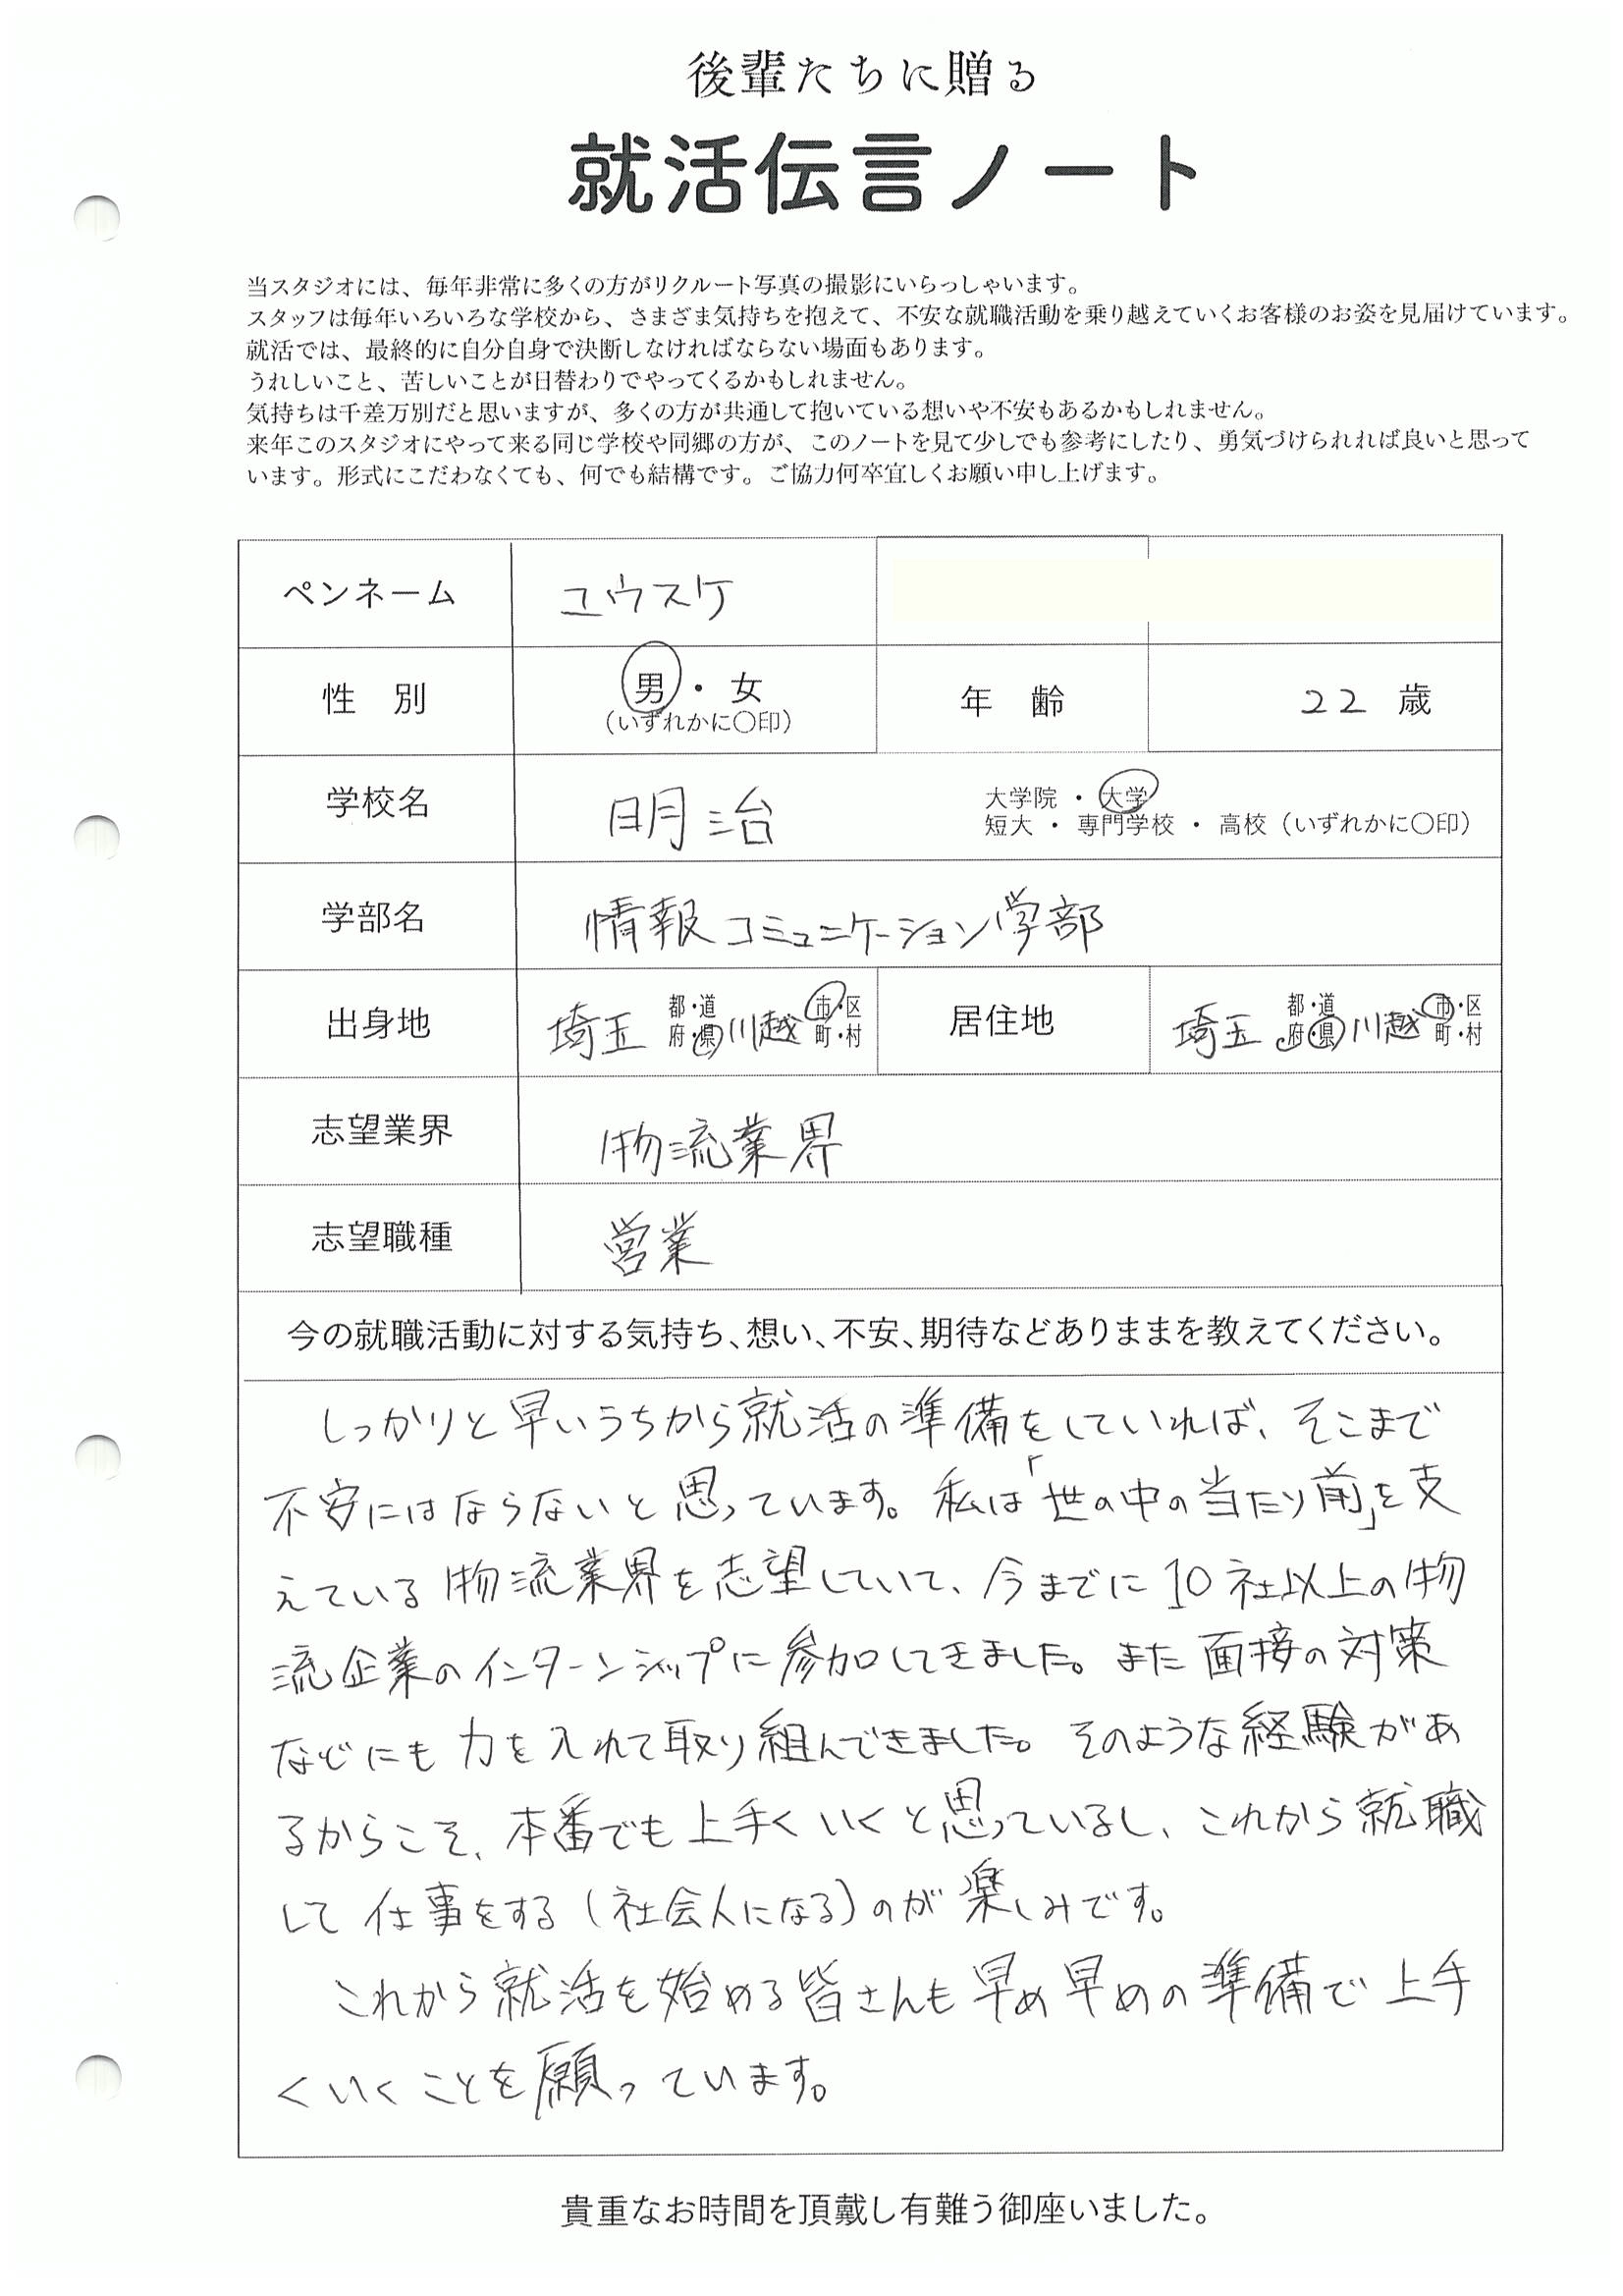 後輩たちに贈る
就活伝言ノート
当スタジオには、毎年非常に多くの方がリクルート写真の撮影にいらっしゃいます。
スタッフは毎年いろいろな学校から、さまざま気持ちを抱えて、不安な就職活動を乗り越えていくお客様のお姿を見届けています。
就活では、最終的に自分自身で決断しなければならない場面もあります。
うれしいこと、苦しいことが日替わりでやってくるかもしれません。
気持ちは千差万別だと思いますが、多くの方が共通して抱いている想いや不安もあるかもしれません。
来年このスタジオにやって来る同じ学校や同郷の方が、このノートを見て少しでも参考にしたり、勇気づけられれば良いと思って
います。形式にこだわなくても、何でも結構です。ご協力何卒宜しくお願い申し上げます。
ペンネーム ユウスケ
性別 男・女 年齢 22 歳
（いずれかに○印）
学校名 明治 大学院・大学
短大・専門学校・高校（いずれかに○印）
学部名 情報コミュニケーション学部
出身地 埼玉 都・道府・県 川越 市・区町・村 居住地 埼玉 都・道府・県 川越 市・区町・村
志望業界 物流業界
志望職種 営業
今の就職活動に対する気持ち、想い、不安、期待などありままを教えてください。
しっかりと早いうちから就活の準備をしていれば、そこまで
不安にはならないと思っています。私は「世の中の当たり前」を支
えている物流業界を志望していて、今までに10社以上の物
流企業のインターンシップに参加してきました。また面接の対策
などにも力を入れて取り組んできました。そのような経験があ
るからこそ、本番でも上手くいくと思っているし、これから就職
して仕事をする(社会人になる)のが楽しみです。
これから就活を始める皆さんも早め早めの準備で上手
くいくことを願っています。
貴重なお時間を頂戴し有難う御座いました。